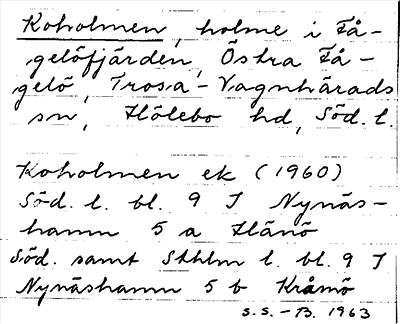 Koholmen, holme i Få-
gelöfjärden, Östra Få-
gelö, Trosa-Vagnhärads
sn, Hölebo hd, Söd. l.
Koholmen ek (1960)
Söd. l. bl. 9 I Nynäs-
hamn 5 a Hånö
Söd. samt Sthlm l. bl. 9 I
Nynäshamn 5 b Kråmö
S.S. - B. 1963